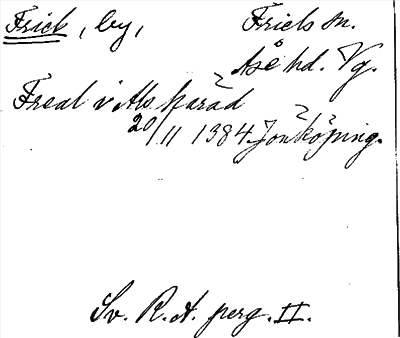 Frick, by, Friels sn.
Åse hd. Vg.
Freal i Als härad
20/11 1384 Jonköping.
Sv. R. A. perg. II.